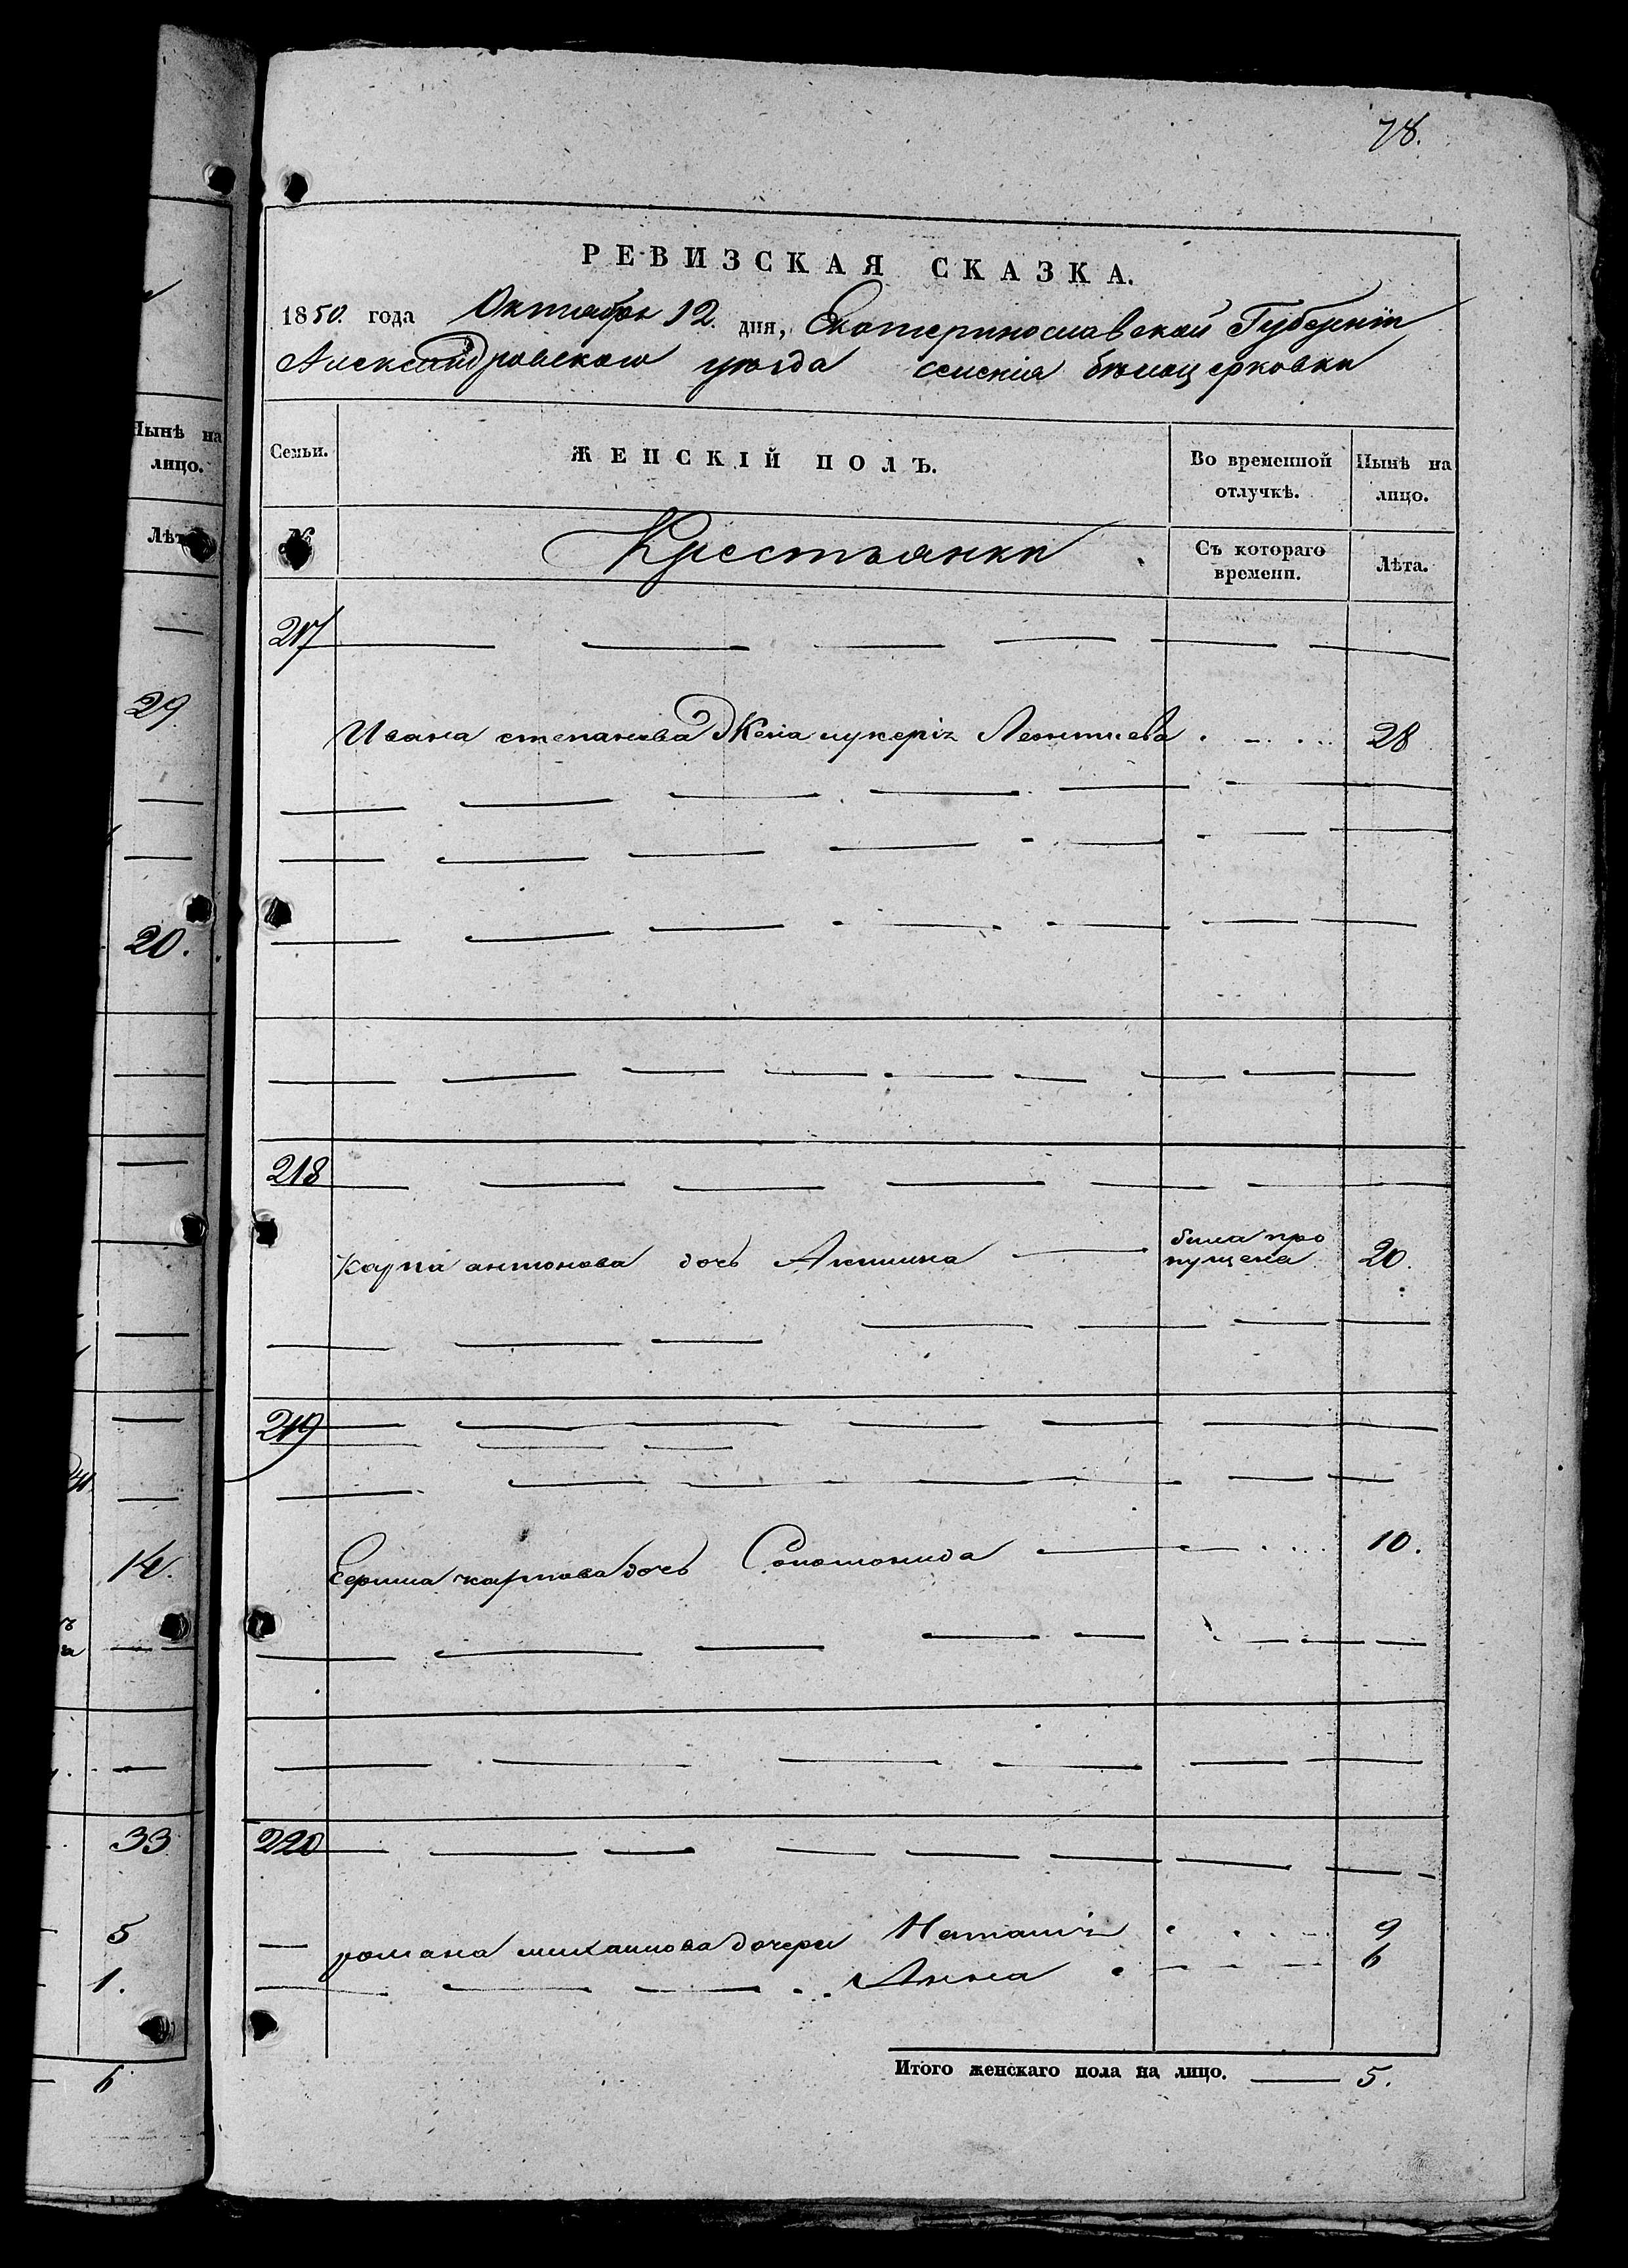 78.
РЕВИЗСКАЯ СКАЗКА.
1850. года Октября 12. дня, Екатеринославской Губерніи
Александровского уѣзда селенія бѣлоцерковки
Семьи. ЖЕНСКІЙ ПОЛЪ. Во временной отлучкѣ. Нынѣ на лицо.
№ Крестьянки Съ котораго времени. Лѣта.
217
Ивана степанова Жена лукерія Леонтиева 28
218
карпа антонова дочь Акилина была про
пущена 20.
219
карпова дочь Соломонида 10.
220
романа михаилова дочери Наталія 9
Анна 6
Итого женскаго пола на лицо. 5.
Нынѣ на
лицо.
Лѣта
29
20.
14.
33
5
1.
6